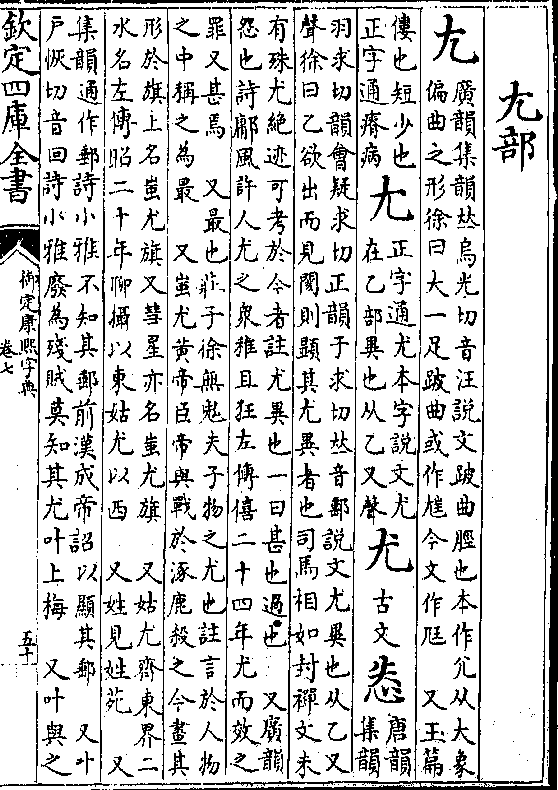 尢部
尢 廣韻集韻𠀤烏光切音汪說文跛曲脛也本作尣从大象
偏曲之形徐曰大一足跛曲或作尪今文作尫 又玉篇
僂也短少也
正字通瘠病
尢 正字通尤本字說文尤
在乙部異也从乙又聲
尤 古文 𢗓 唐韻
集韻
羽求切韻會疑求切正韻于求切𠀤音郵說文尤異也从乙又
聲徐曰乙欲出而見閡則顯其尤異者也司馬相如封禪文未
有殊尤絕迹可考於今者註尤異也一曰甚也過也 又廣韻
怨也詩鄘風許人尤之衆穉且狂左傳僖二十四年尤而效之
罪又甚焉 又最也莊子徐無鬼夫子物之尤也註言於人物
之中稱之為最 又蚩尤黄帝臣帝與戰於涿鹿殺之今畫其
形於旗上名蚩尤旗又彗星亦名蚩尤旗 又姑尤齊東界二
水名左傳昭二十年聊攝以東姑尤以西 又姓見姓苑 又
集韻通作郵詩小雅不知其郵前漢成帝詔以顯其郵 又叶
戶恢切音回詩小雅廢為殘賊莫知其尤叶上梅 又叶與之
欽定四庫全書
御定康熙字典
卷七
五十